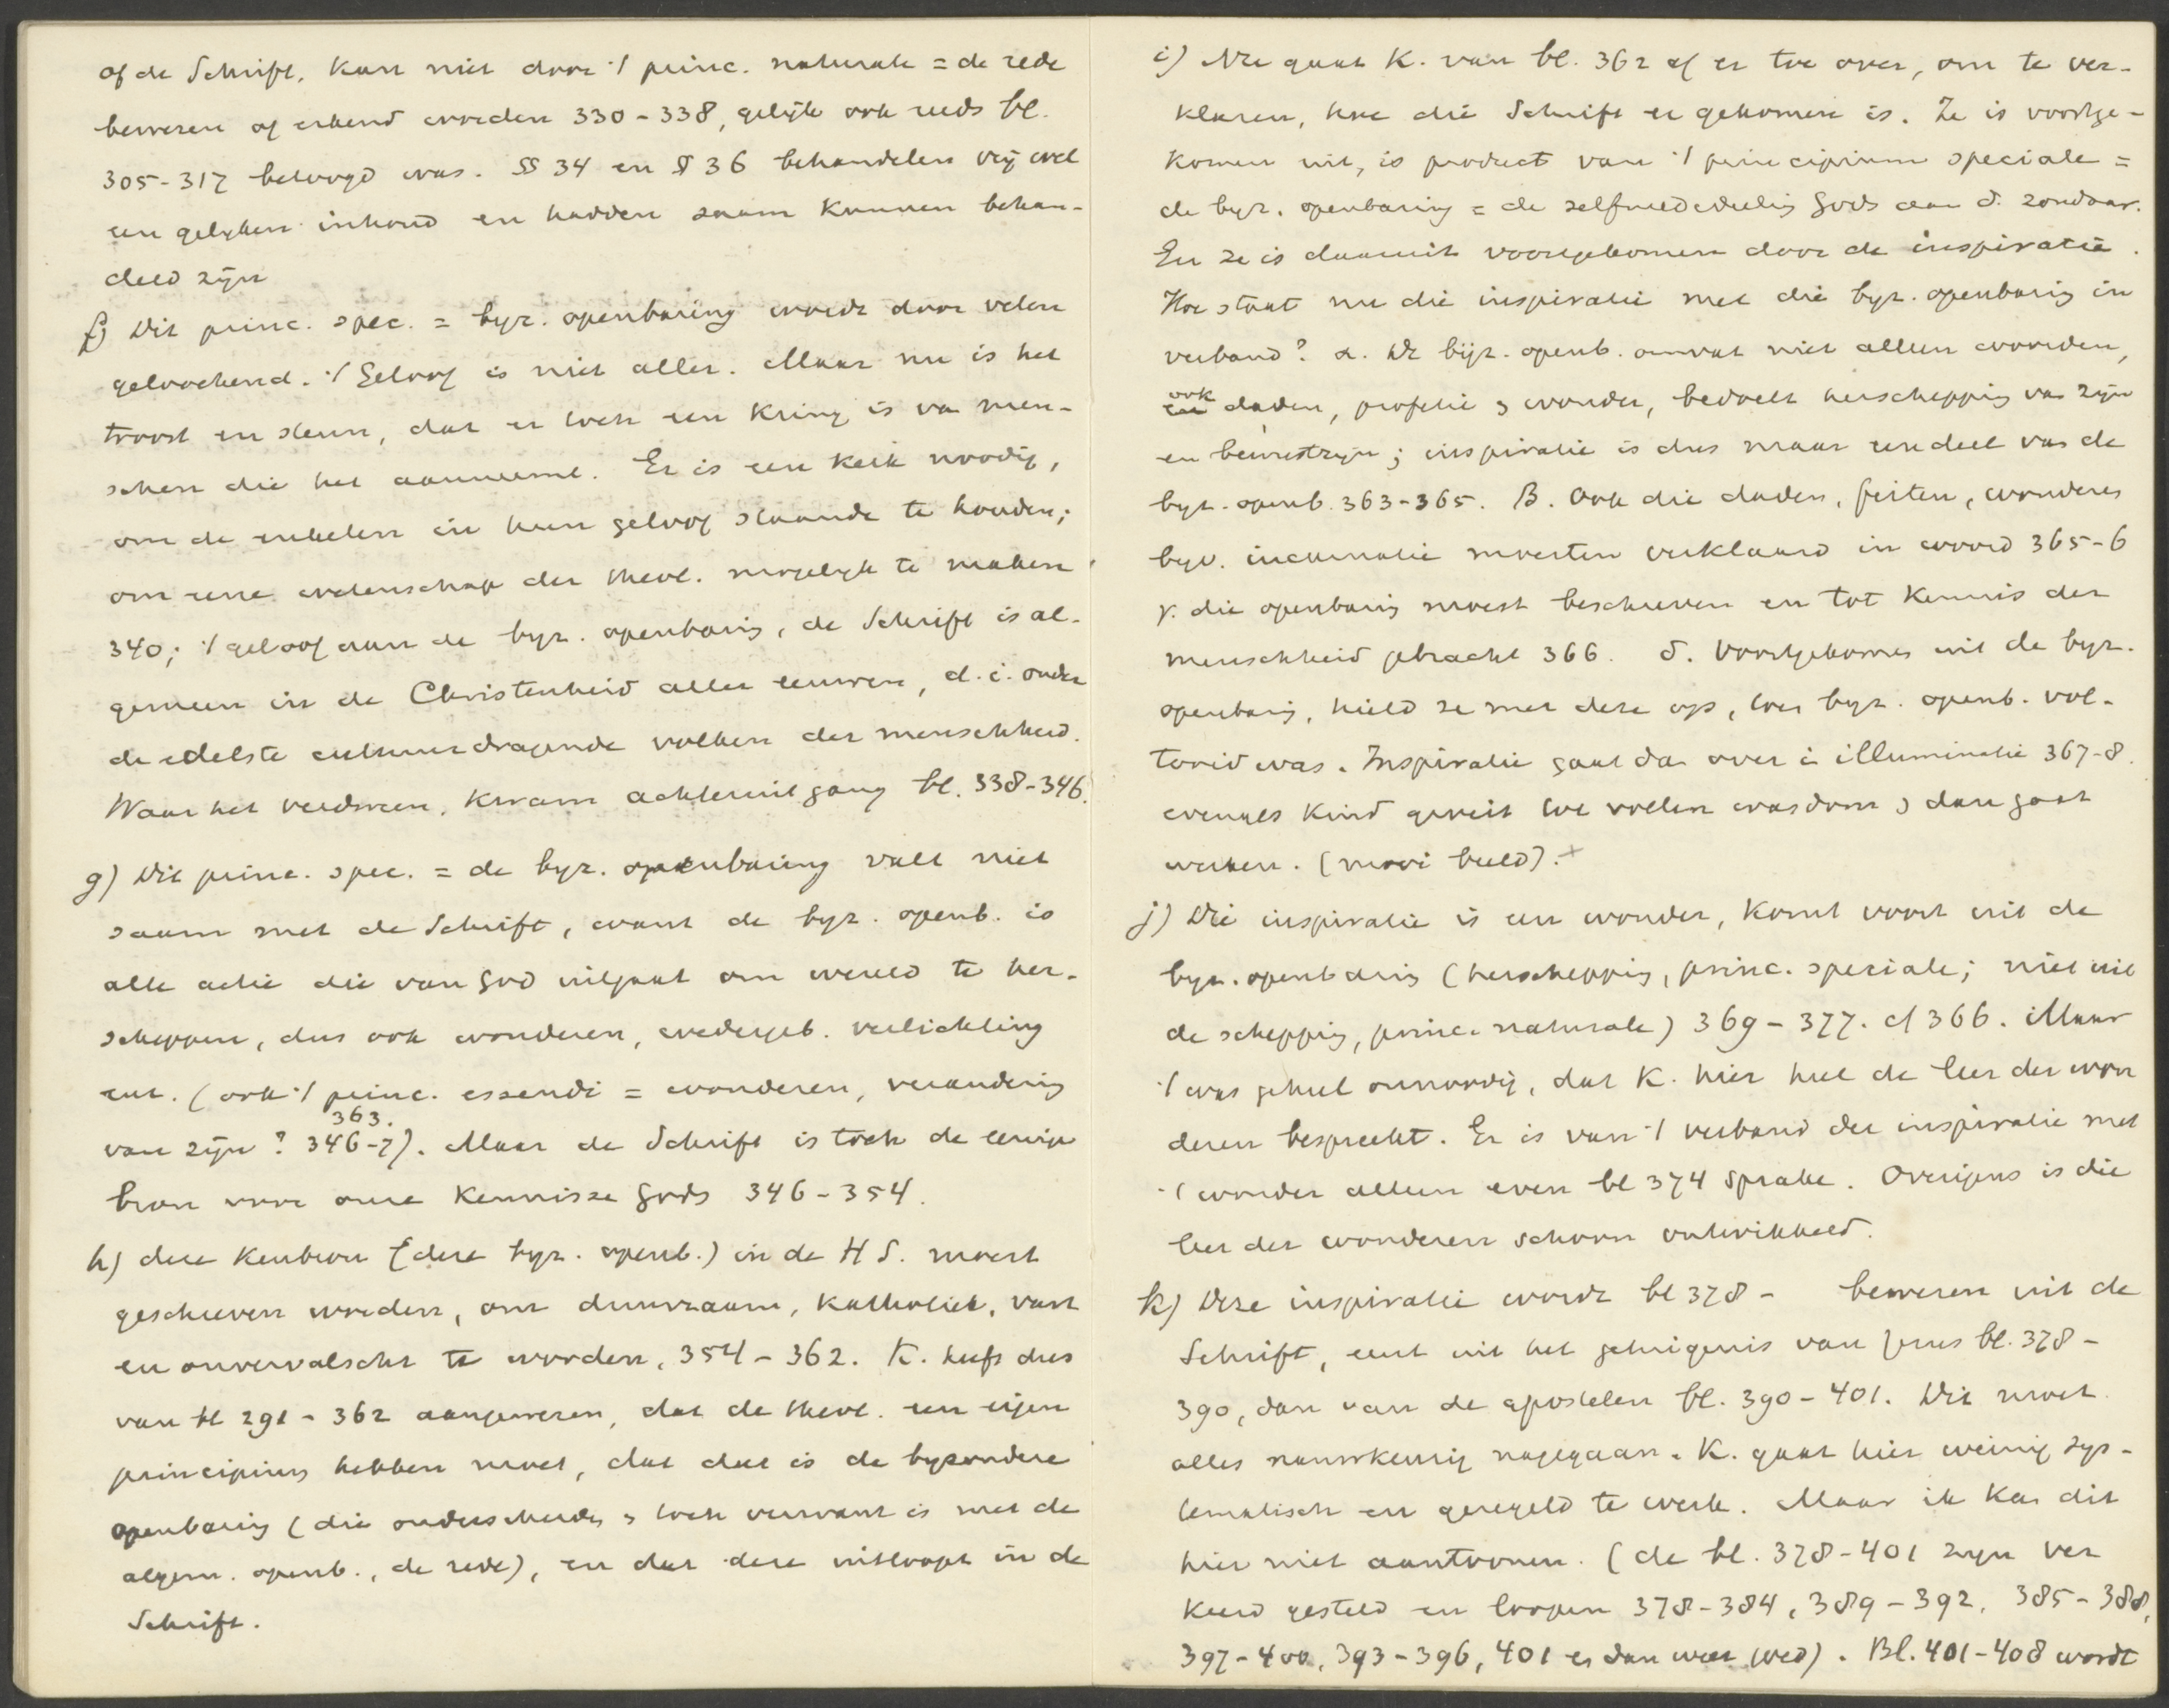 of de Schrift, kan niet door 't princ. naturale = de rede
bewezen of erkend worden 330-338, gelijk ook reeds bl.
305-317 betoogd was. §§ 34 en § 36 behandelen vrij wel
een gelijken inhoud en hadden saam kunnen behan-
deld zijn
f) Dit princ. spec. = byz. openbaring wordt door velen
geloochend. 't Geloof is niet aller. Maar nu is het
troost en steun, dat er toch een kring is va men-
schen die het aanneemt. Er is een kerk noodig,
om de enkelen in hun geloof staande te houden;
om eene wetenschap der theol. mogelijk te maken
340; 't geloof aan de byz. openbaring, de Schrift is al-
gemeen in de Christenheid aller eeuwen, d.i. onder
de edelste cultuurdragende volken der menschheid.
Waar het verdween, kwam achteruitgang bl. 338-346.
g) Dit princ. spec. = de byz. openbaring valt niet
saam met de Schrift, want de byz. openb. is
alle actie die van God uitgaat om wereld te her-
scheppen, dus ook wonderen, wedergeb. verlichting
enz. (ook 't princ. essendi = wonderen, verandering
363.
van zijn? 346-7). Maar de Schrift is toch de eenige
bron voor onze kennisse Gods 346-354.
h) deze kenbron (deze byz. openb.) in de H S. moest
geschreven worden, om duurzaam, katholiek, vast
en onvervalscht te worden, 354-362. K. heeft dus
van bl 291-362 aangewezen, dat de theol. een eigen
principium hebben moet, dat dat is de byzondere
openbaring (die onderscheiden & toch verwant is met de
algem. openb., de rede), en dat deze uitloopt in de
Schrift.
i) Nu gaat K. van bl. 362 af er toe over, om te ver-
klaren, hoe die Schrift er gekomen is. Ze is voortge-
komen uit, is product van 't principium speciale =
de byz. openbaring = de zelfmededeeling Gods aan d. zondaar.
En ze is daaruit voortgekomen door de inspiratie.
Hoe staat nu die inspiratie met die byz. openbaring in
verband? α. De bijz. openb. omvat niet alleen woorden,
ook
en daden, profetie & wonder, bedoelt herschepping van zijn
en bewustzijn; inspiratie is dus maar een deel van de
byz. openb. 363-365. β. Ook die daden, feiten, wonderen
byv. incarnatie moesten verklaard in woord 365-6
γ. die openbaring moest beschreven en tot kennis der
menschheid gebracht 366. δ. Voortgekomen uit de byz.
openbaring, hield ze met deze op, toen byz. openb. vol-
tooid was. Inspiratie gaat dan over in illuminatie 367-8.
evenals kind groeit tot vollen wasdom & dan gaat
werken. (mooi beeld). +
j) Die inspiratie is een wonder, komt voort uit de
byz. openbaring (herschepping, princ. speciale; niet uit
de schepping, princ. naturale) 369-377. cf 366. Maar
't was geheel onnoodig, dat K. hier heel de leer der won
deren bespreekt. Er is van 't verband der inspiratie met
't wonder alleen even bl 374 sprake. Overigens is die
leer der wonderen schoon ontwikkeld.
k) Deze inspiratie wordt bl 378 - bewezen uit de
Schrift, eerst uit het getuigenis van Jezus bl. 378-
390, dan van de apostelen bl. 390-401. Dit moet
alles nauwkeurig nagegaan. K. gaat hier weinig sys-
tematisch en geregeld te werk. Maar ik kan dit
hier niet aantoonen. (de bl. 378-401 zijn ver
keerd gesteld en loopen 378-384, 389-392, 385-388,
397-400, 393-396, 401 en dan weer goed). Bl. 401-408 wordt